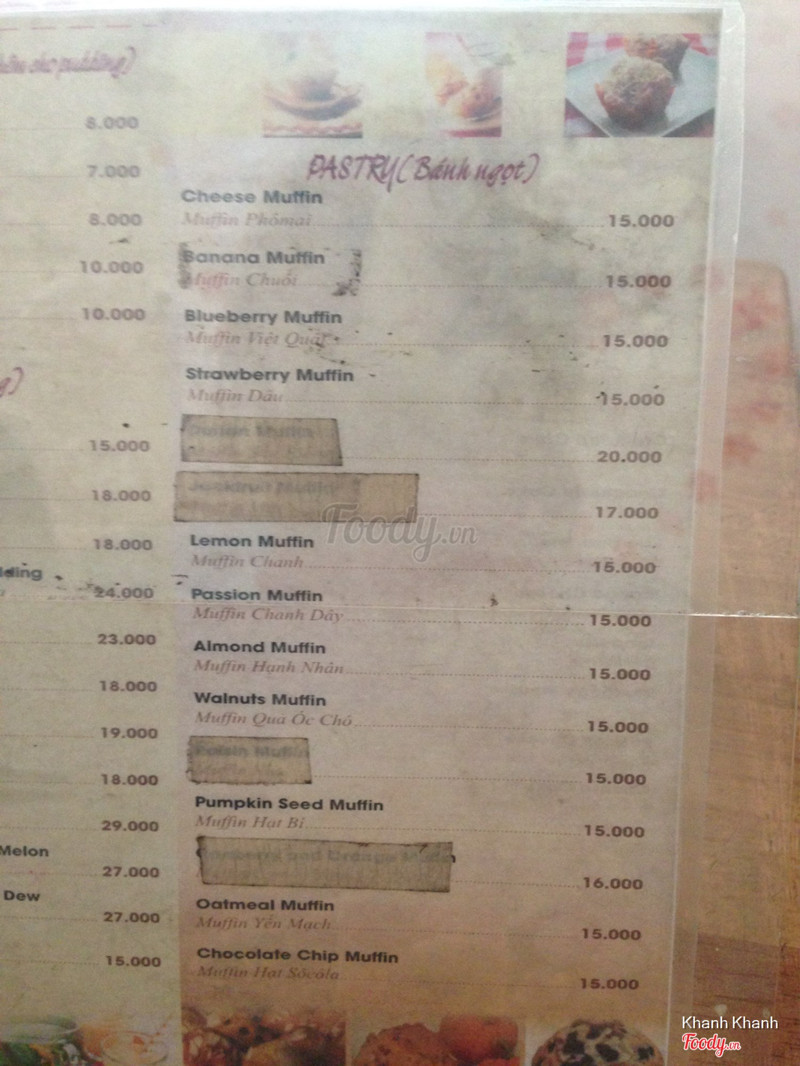 8.000
7.000
8.000
10.000
10.000
15.000
18.000
18.000
24.000
23.000
18.000
19.000
18.000
29.000
Melon
27.000
Dew
27.000
15.000
PASTRY (Bánh ngọt)
Cheese Muffin
Muffin Phômai 15.000
Banana Muffin
Muffin Chuối 15.000
Blueberry Muffin
Muffin Việt Quất 15.000
Strawberry Muffin
Muffin Dâu 15.000
20.000
Jackfruit Muffin
17.000
Lemon Muffin
Muffin Chanh 15.000
Passion Muffin
Muffin Chanh Dây 15.000
Almond Muffin
Muffin Hạnh Nhân 15.000
Walnuts Muffin
Muffin Quả Óc Chó 15.000
Raisin Muffin
15.000
Pumpkin Seed Muffin
Muffin Hạt Bí 15.000
16.000
Oatmeal Muffin
Muffin Yến Mạch 15.000
Chocolate Chip Muffin
Muffin Hạt Sôcôla 15.000
Foody.vn
Khanh Khanh
Foody.vn